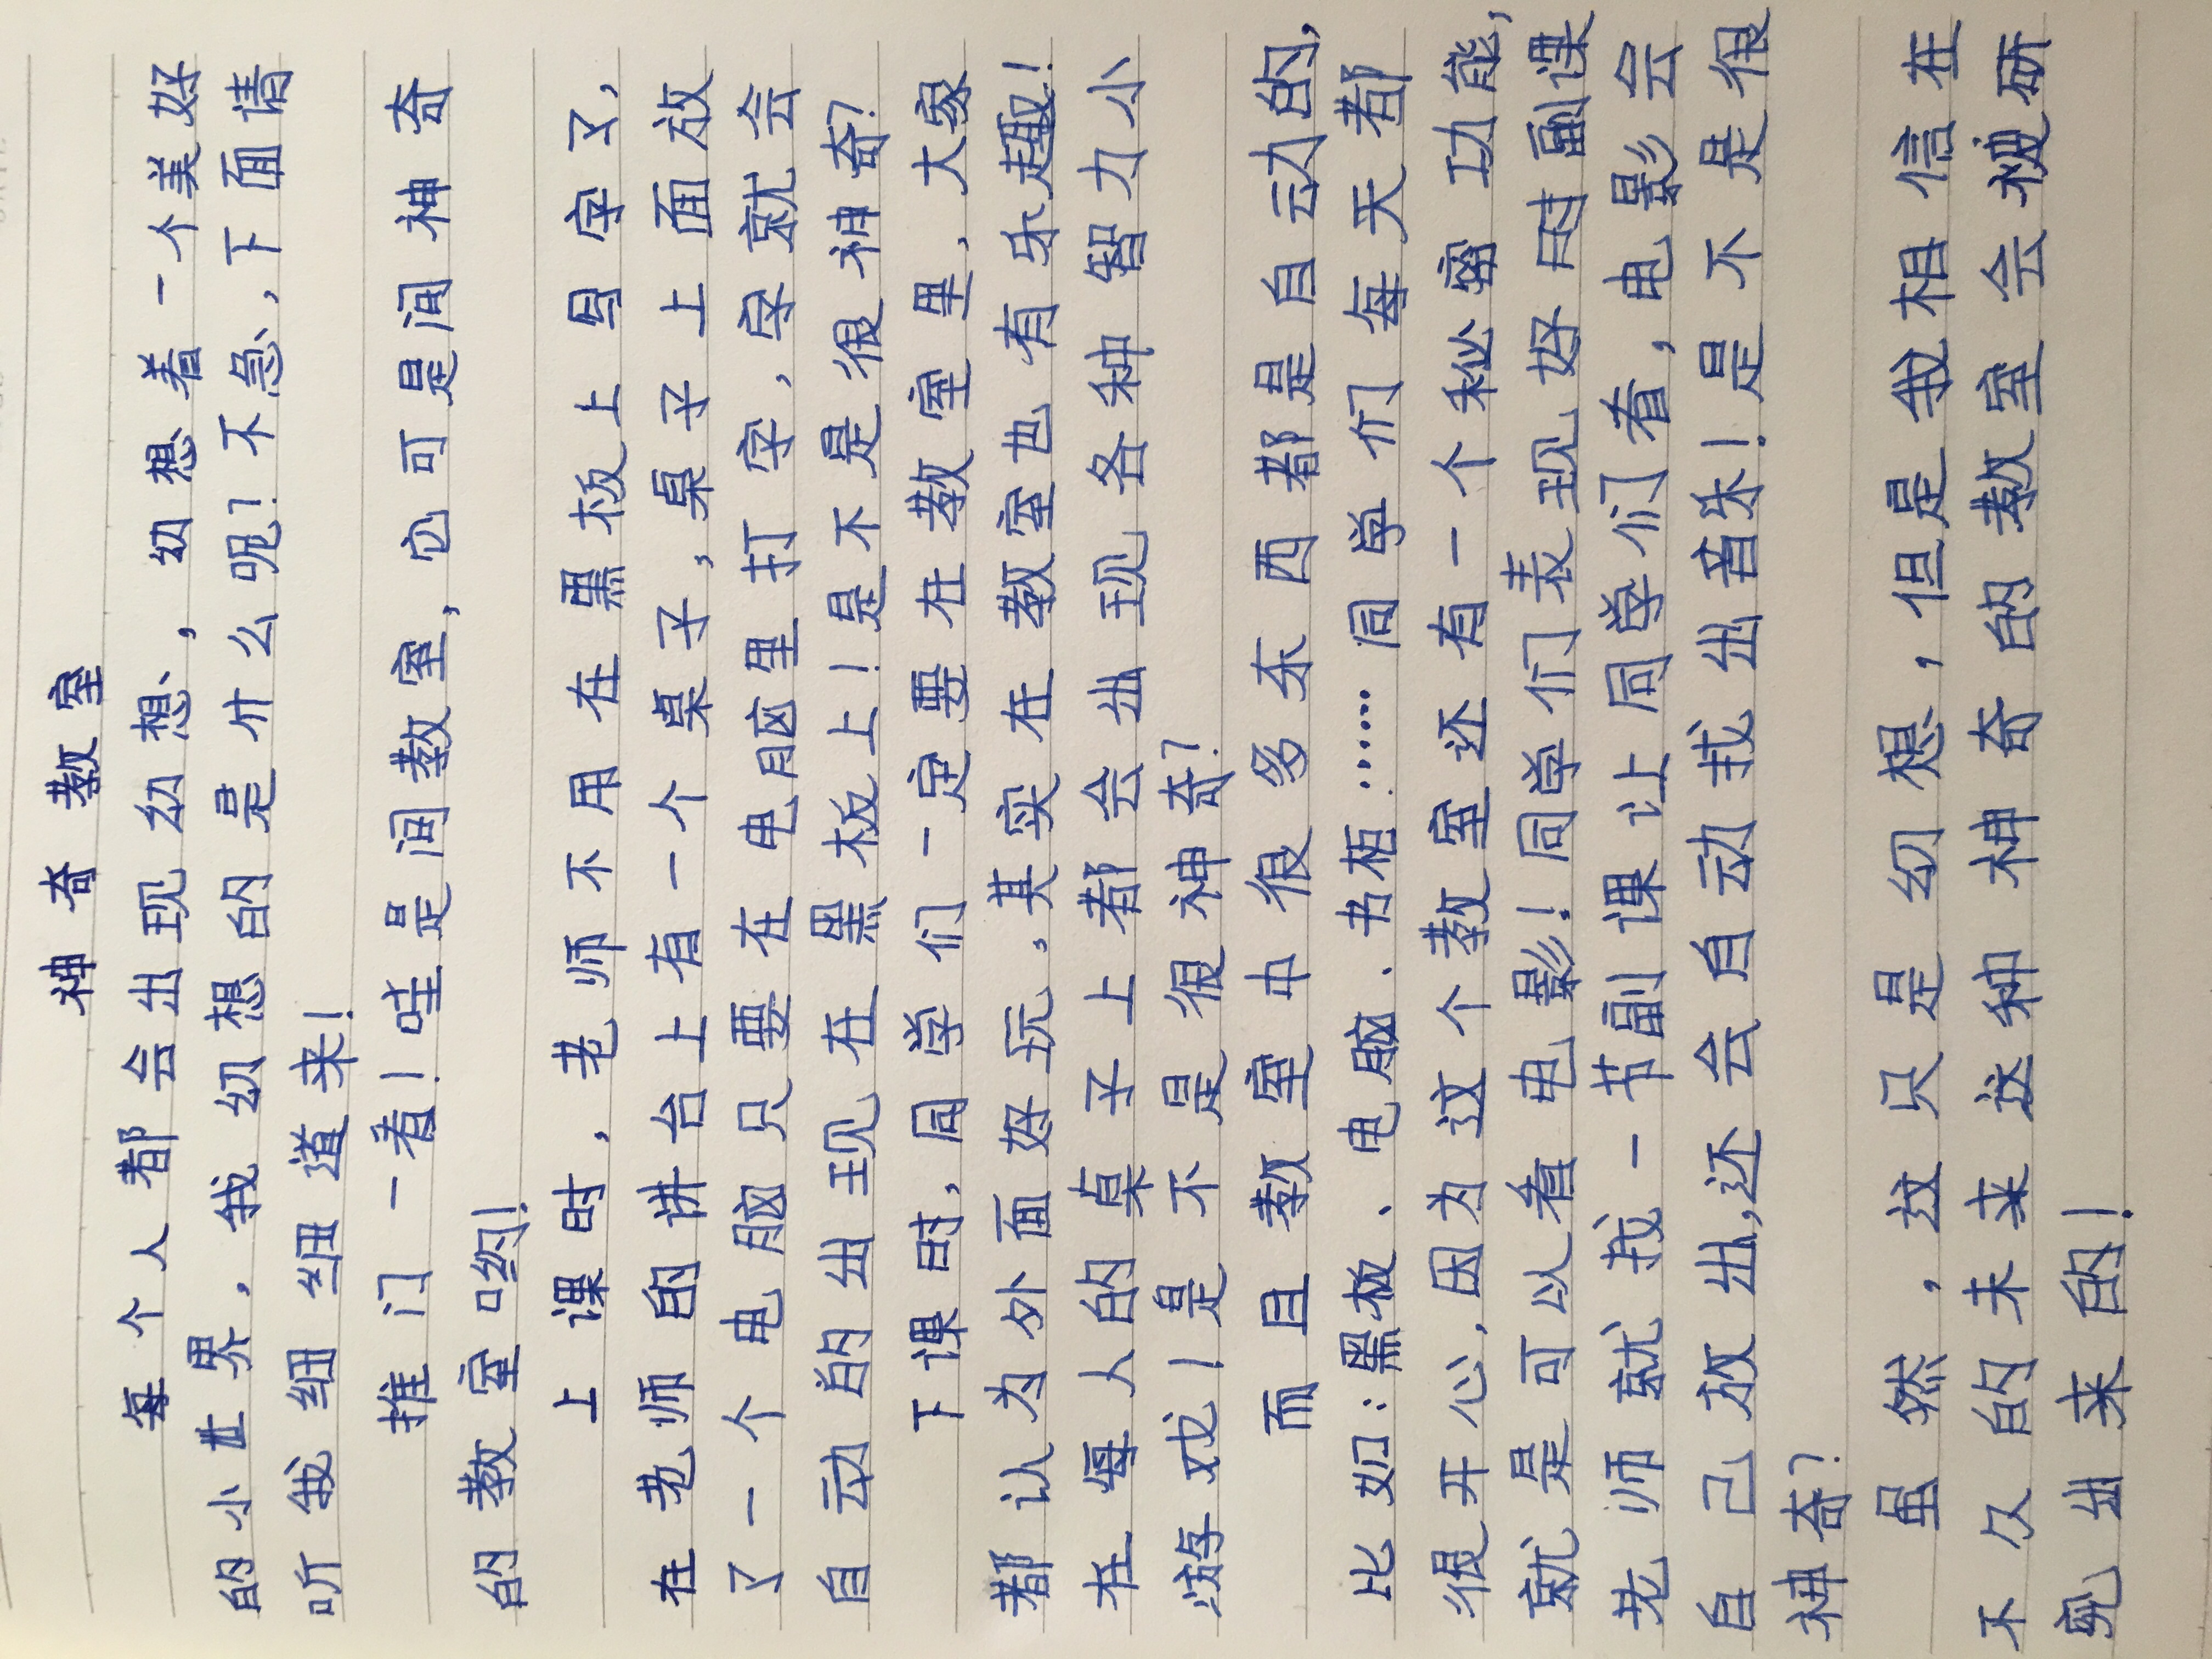 神奇教室
每个人都会出现幻想，幻想着一个美好
的小世界，我幻想的是什么呢？不急，下面请
听我细细道来！
推门一看！哇是间教室，它可是间神奇
的教室哟！
上课时，老师不用在黑板上写字了，
在老师的讲台上有一个桌子，桌子上面放
了一个电脑只要在电脑里打字，字就会
自动的出现在黑板上！是不是很神奇？
下课时，同学们一定要在教室里，大家
都认为外面好玩，其实在教室也有乐趣！
在每人的桌子上都会出现各种智力小
游戏！是不是很神奇？
而且教室中很多东西都是自动的，
比如：黑板、电脑、书柜……同学们每天都
很开心，因为这个教室还有一个秘密功能，
就是可以看电影！同学们表现好时副课
老师就找一节副课让同学们看，电影会
自己放出，还会自动找出音乐！是不是很
神奇？
虽然，这只是幻想，但是我相信在
不久的未来这种神奇的教室会被研
究出来的！